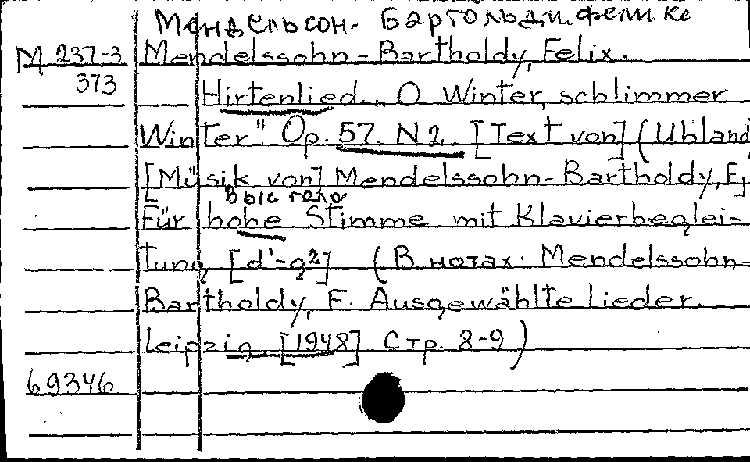 Мендельсон-Бартольди, Феликс
М 237-3 Mendelssohn-Bartholdy, Felix.
373 Hirtenlied. O Winter, schlimmer
Winter" Op. 57. N 2. [Text von] (Uhland
[Musik von] Mendelssohn-Bartholdy, F.]
Высг голо
Für hohe Stimme mit Klavierbeglei-
tung [d'-g²] (В нотах: Mendelssohn-
Bartholdy, F. Ausgewählte Lieder.
Leipzig [1948] Стр. 8-9)
69346